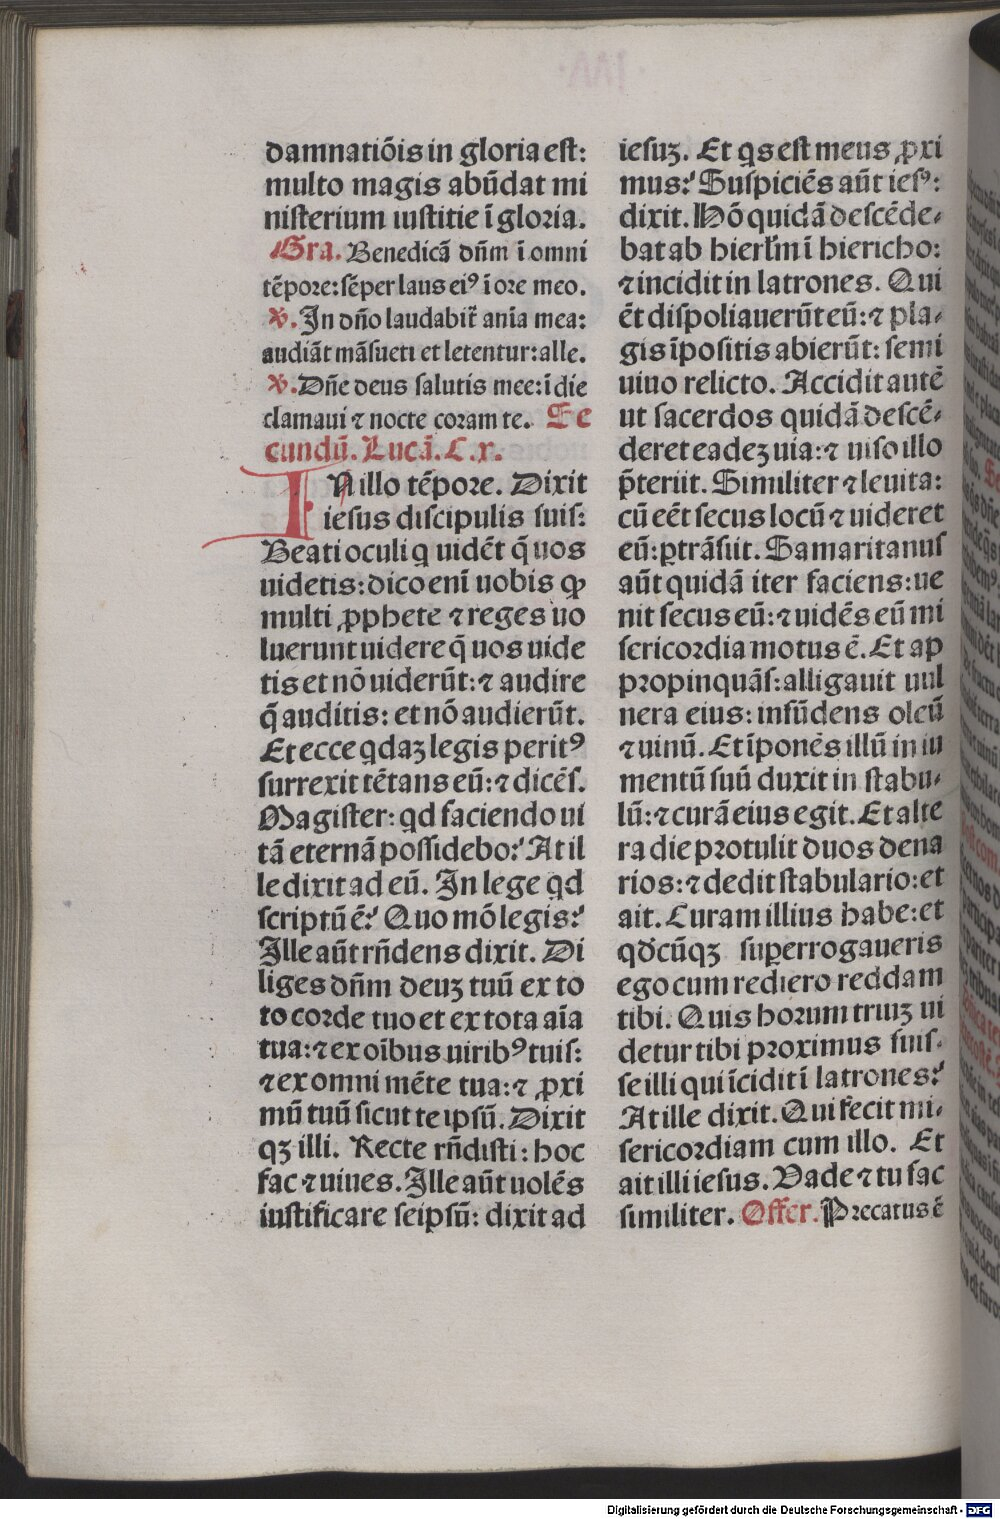 damnatiōis in gloria est:
multo magis abūdat mi
nisterium iustitie ī gloria.
Gra. Benedicā dn̄m ī omni
tēpore: sēper laus eiꝰ ī ore meo.
v. In dn̄o laudabit̄ anīa mea:
audiāt māsueti et letentur: alle.
v. Dn̄e deus salutis mee: ī die
clamaui ⁊ nocte coram te. Se
cundū. Lucā. C. x.
IN illo tēpore. Dixit
iesus discipulis suis:
Beati oculi q uidēt q̄ uos
uidetis: dico enī uobis ꝙ
multi ꝓphete ⁊ reges uo
luerunt uidere q̄ uos uide
tis et nō uiderūt: ⁊ audire
q̄ auditis: et nō audierūt.
Et ecce qdaꝫ legis peritꝰ
surrexit tētans eū: ⁊ dicēs.
Magister: qd faciendo ui
tā eternā possidebo: At il
le dixit ad eū. In lege qd
scriptū ē: Quo mō legis:
Ille aūt rn̄dens dixit. Di
liges dn̄m deuꝫ tuū ex to
to corde tuo et ex tota aīa
tua: ⁊ ex oībus uiribꝰ tuis:
⁊ ex omni mēte tua: ⁊ ꝓxi
mū tuū sicut te ipsū. Dixit
qꝫ illi. Recte rn̄disti: hoc
fac ⁊ uiues. Ille aūt uolēs
iustificare seipsū: dixit ad
iesuꝫ. Et qs est meus ꝓxi
mus: Suspiciēs aūt iesꝰ:
dixit. Hō quidā descēde-
bat ab hierl̄m ī hiericho:
⁊ incidit in latrones. Qui
ēt dispoliauerūt eū: ⁊ pla-
gis īpositis abierūt: semi
uiuo relicto. Accidit autē
ut sacerdos quidā descē-
deret eadeꝫ uia: ⁊ uiso illo
p̄teriit. Similiter ⁊ leuita:
cū eēt secus locū ⁊ uideret
eū: ꝑtrāsiit. Samaritanus
aūt quidā iter faciens: ue
nit secus eū: ⁊ uidēs eū mi
sericordia motus ē. Et ap
propinquās: alligauit uul
nera eius: infūdens oleū
⁊ uinū. Et īponēs illū in iu
mentū suū duxit in stabu-
lū: ⁊ curā eius egit. Et alte
ra die protulit duos dena
rios: ⁊ dedit stabulario: et
ait. Curam illius habe: et
qd̄cūqꝫ supererogaueris
ego cum rediero reddam
tibi. Quis horum triuꝫ ui
detur tibi proximus fuis-
se illi qui īcidit ī latrones:
At ille dixit. Qui fecit mi-
sericordiam cum illo. Et
ait illi iesus. Vade ⁊ tu fac
similiter. Offer. Precatus ē
Digitalisierung gefördert durch die Deutsche Forschungsgemeinschaft - DFG